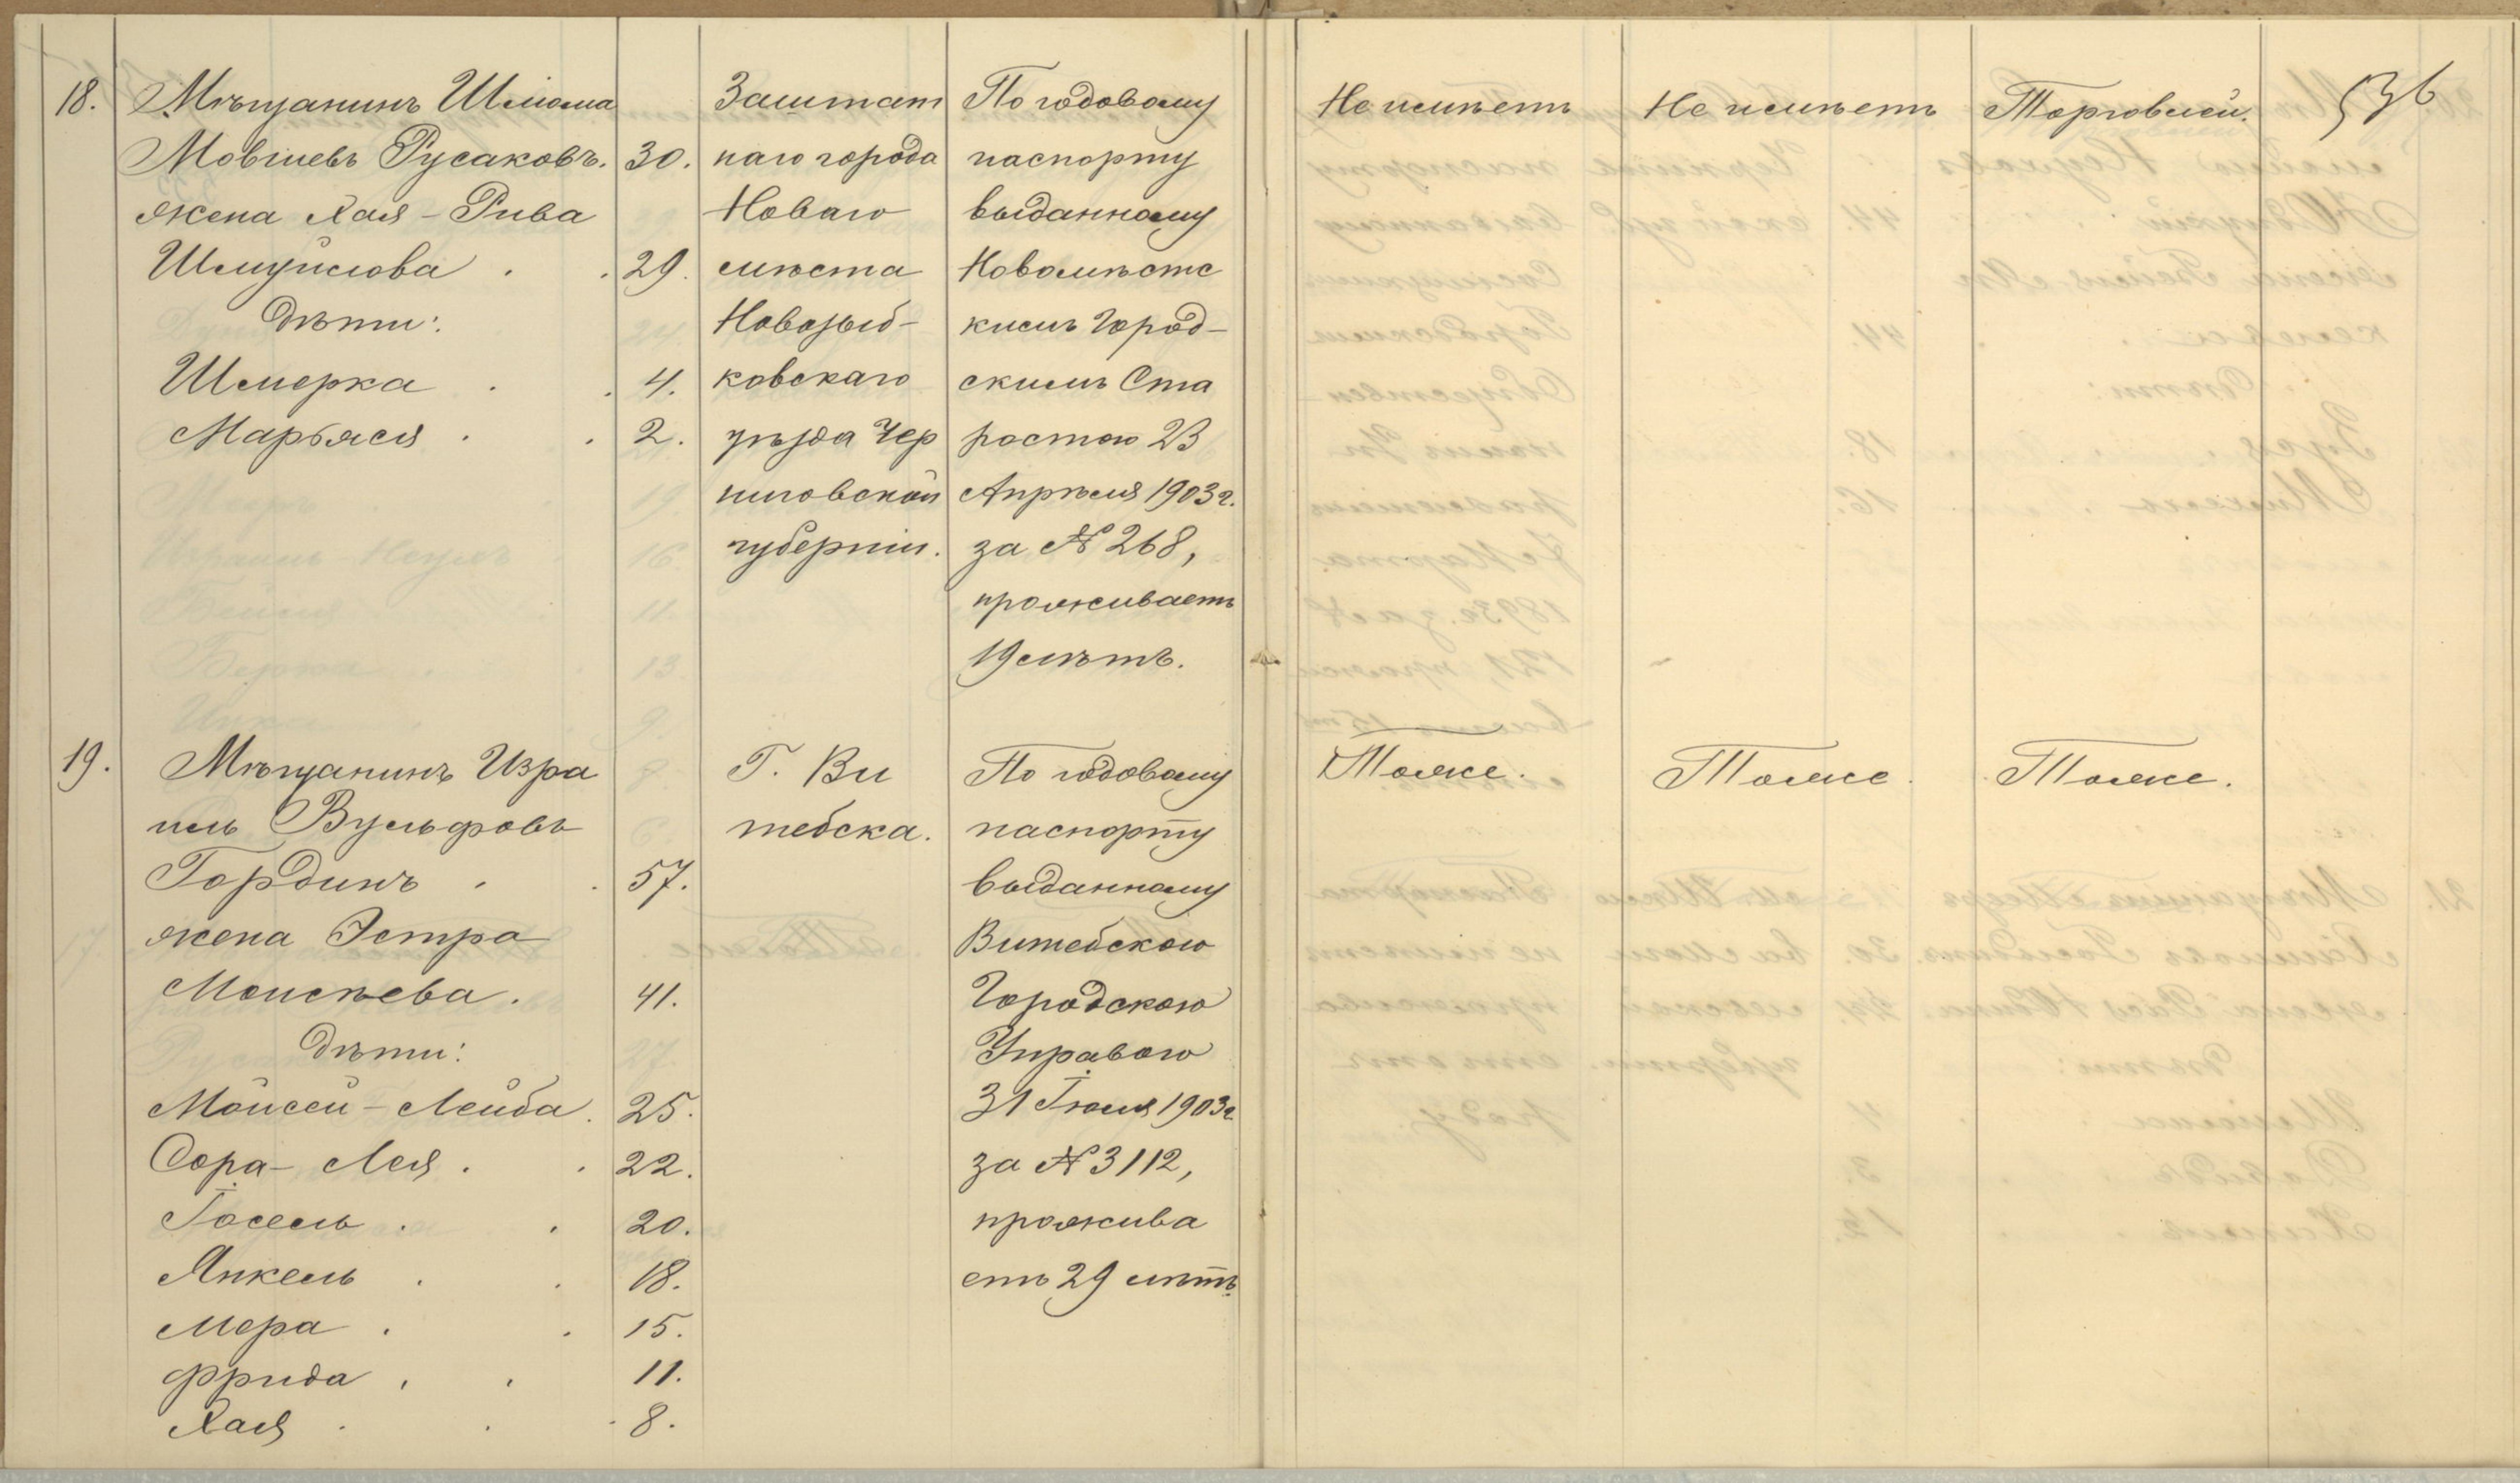 18.
Мѣщанинъ Шлиома
Мовшевъ Русаковъ. 30.
жена Хая-Рива
Шмуйлова . . 29.
дѣти:
Шмерка . . 4.
Марьяся . . 2.
Заштат
наго города
Новаго
мѣста
Новозыб-
ковскаго
уѣзда Чер
ниговской
губерніи.
По годовому
паспорту
выданному
Новомѣстс
кимъ Город-
скимъ Ста
ростою 23
Апрѣля 1903 г.
за № 268,
проживаетъ
19 лѣтъ.
Не имѣетъ
Не имѣетъ
Торговлей.
536
19.
Мѣщанинъ Изра
иль Вульфовъ
Гординъ . . 57.
жена Эстра
Моисѣева . 41.
дѣти:
Мойсей-Лейба . 25.
Сора-Лея . . 22.
Іосель . . 20.
Янкель . . 18.
Мера . . 15.
Фрида . . 11.
Хая . . 8.
Г. Ви
тебска.
По годовому
паспорту
выданному
Витебскою
Городскою
Управою
31 Іюля 1903 г.
за № 3112,
прожива
етъ 29 лѣтъ.
Тоже.
Тоже.
Тоже.